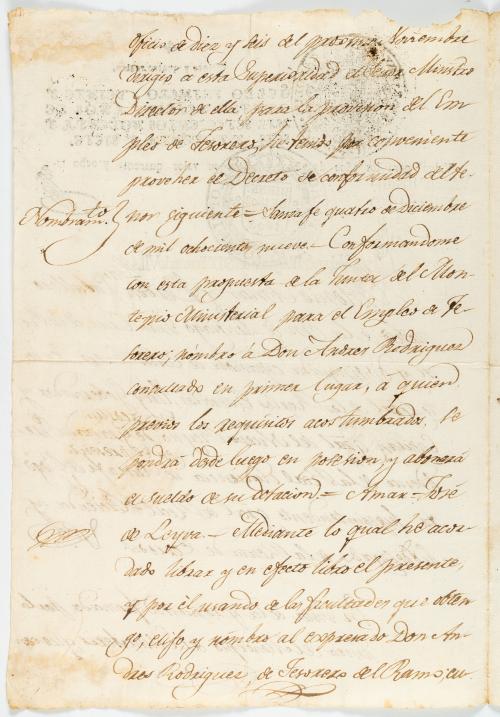 oficio de diez y seis del proximo Noviembre
dirigio a esta Superioridad el Señor Ministro
Director de ella para la provision del Em-
pleo de Tesorero, he tenido por conveniente
proveher el Decreto de conformidad del te-
Nombramto. nor siguiente = Santafe quatro de Diciembre
de mil ochocientos nueve = Conformandome
con esta propuesta de la Junta del Mon-
tepio Ministerial para el Empleo de Te-
sorero, nombro á Don Andres Rodriguez
consultado en primer lugar, á quien
previos los requisitos acostumbrados, se
pondrá desde luego en posesion, y abonará
el sueldo de su dotacion = Amar = José
de Leyva = Mediante lo qual he acor-
dado librar y en efecto libro el presente,
y por él usando de las facultades que obten-
go, elijo, y nombro al expresado Don An-
dres Rodriguez, de Tesorero del Ramo, cu-